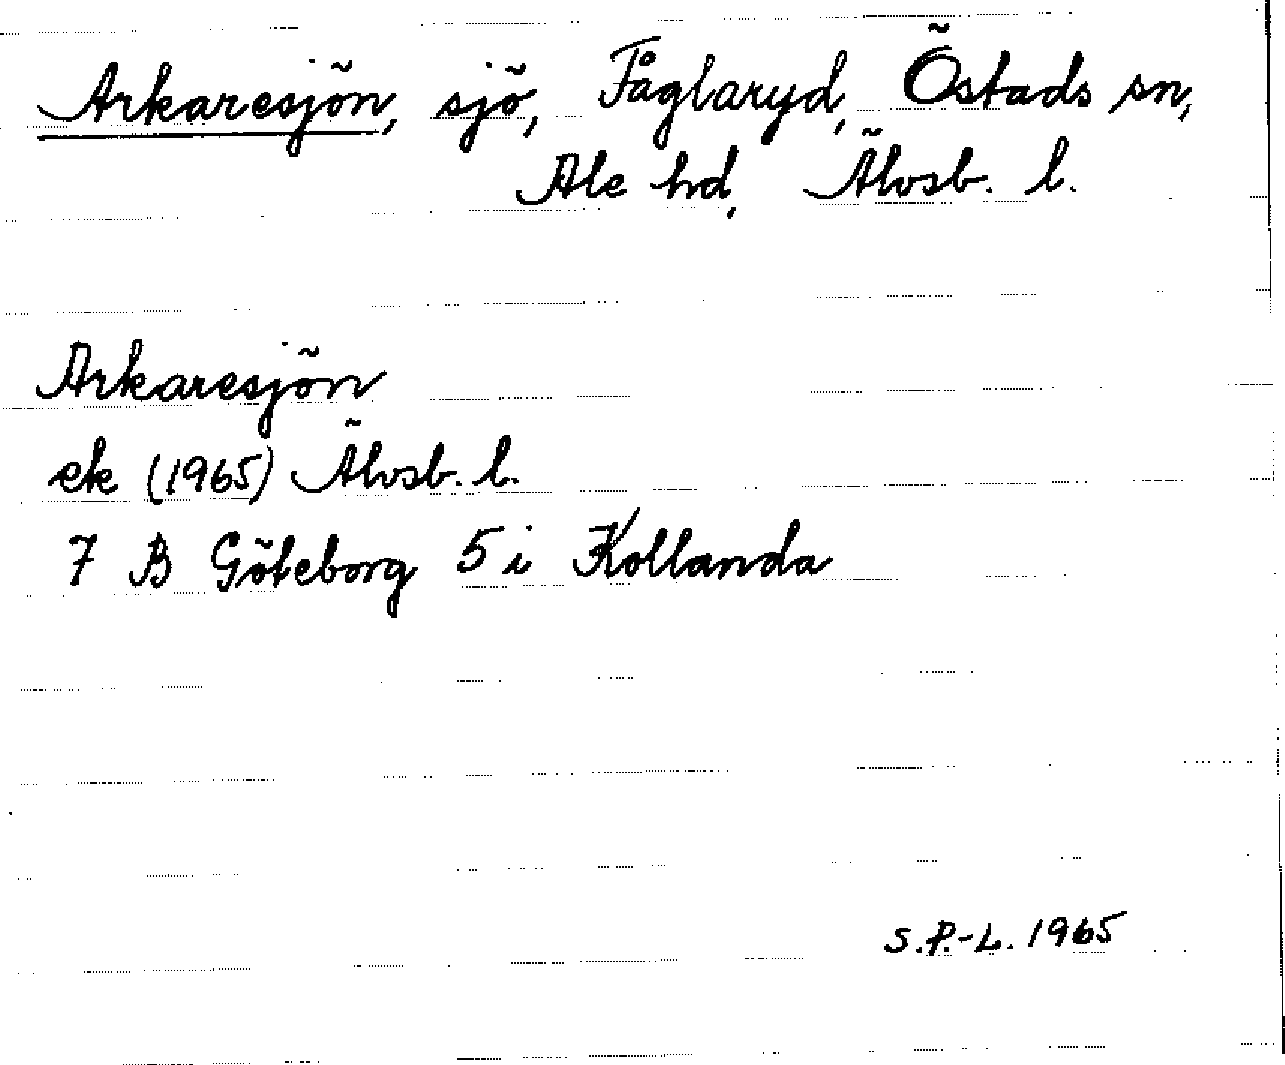 Arkaresjön, sjö, Fåglaryd, Östads sn,
Ale hd, Älvsb. l.
Arkaresjön
ek (1965) Älvsb. l.
7 B Göteborg 5 i Kollanda
S.P.-L. 1965